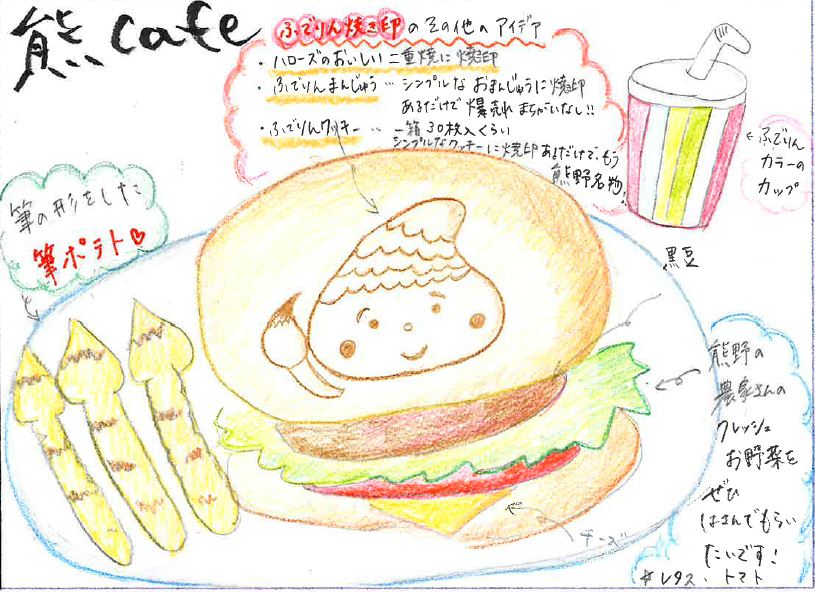 熊cafe
ふでりん焼き印のその他のアイデア
・ハローズのおいしい二重焼に焼き印
・ふでりんまんじゅう…シンプルなおまんじゅうに焼き印
あるだけで爆売れまちがいなし!!
・ふでりんクッキー…一箱30枚入くらい
シンプルなクッキーに焼き印あるだけで、もう
熊野名物!
←ふでりん
カラーの
カップ
筆の形をした
筆ポテト♡
黒豆
熊野の
農家さんの
フレッシュ
お野菜を
ぜひ
はさんでもらい
たいです!
チーズ
*レタス・トマト